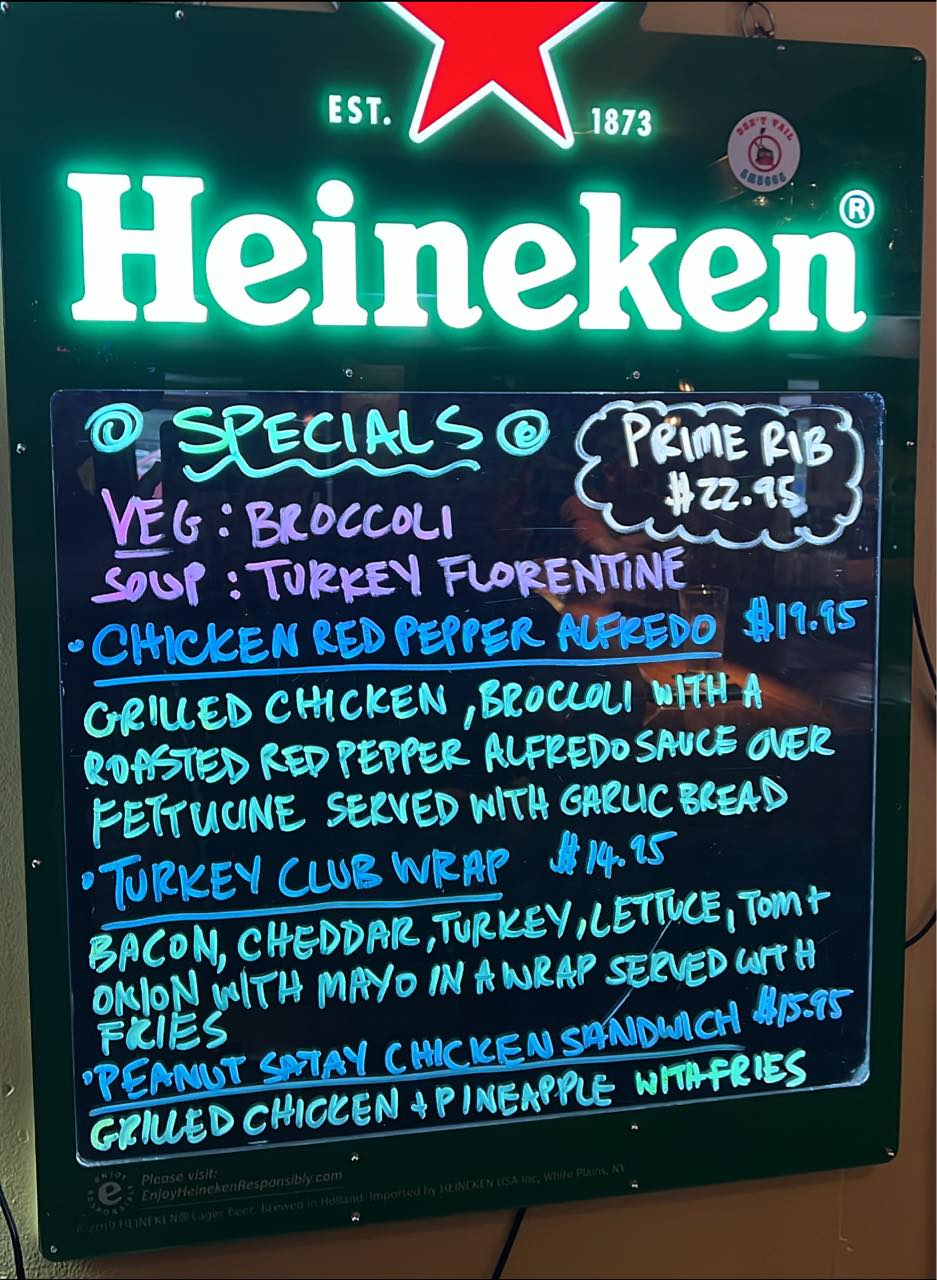 EST. 1873
DON'T FAIL
Heineken®
SPECIALS
PRIME RIB
$22.95
VEG: BROCCOLI
SOUP: TURKEY FLORENTINE
• CHICKEN RED PEPPER ALFREDO $19.95
GRILLED CHICKEN, BROCCOLI WITH A
ROASTED RED PEPPER ALFREDO SAUCE OVER
FETTUCINE SERVED WITH GARLIC BREAD
• TURKEY CLUB WRAP $14.95
BACON, CHEDDAR, TURKEY, LETTUCE, TOM +
ONION WITH MAYO IN A WRAP SERVED WITH
FRIES
• PEANUT SATAY CHICKEN SANDWICH $15.95
GRILLED CHICKEN + PINEAPPLE WITH FRIES
ENJOY
e
RESPONSIBLY
Please visit:
EnjoyHeinekenResponsibly.com
©2019 HEINEKEN® Lager Beer. Brewed in Holland. Imported by HEINEKEN USA Inc, White Plains, NY